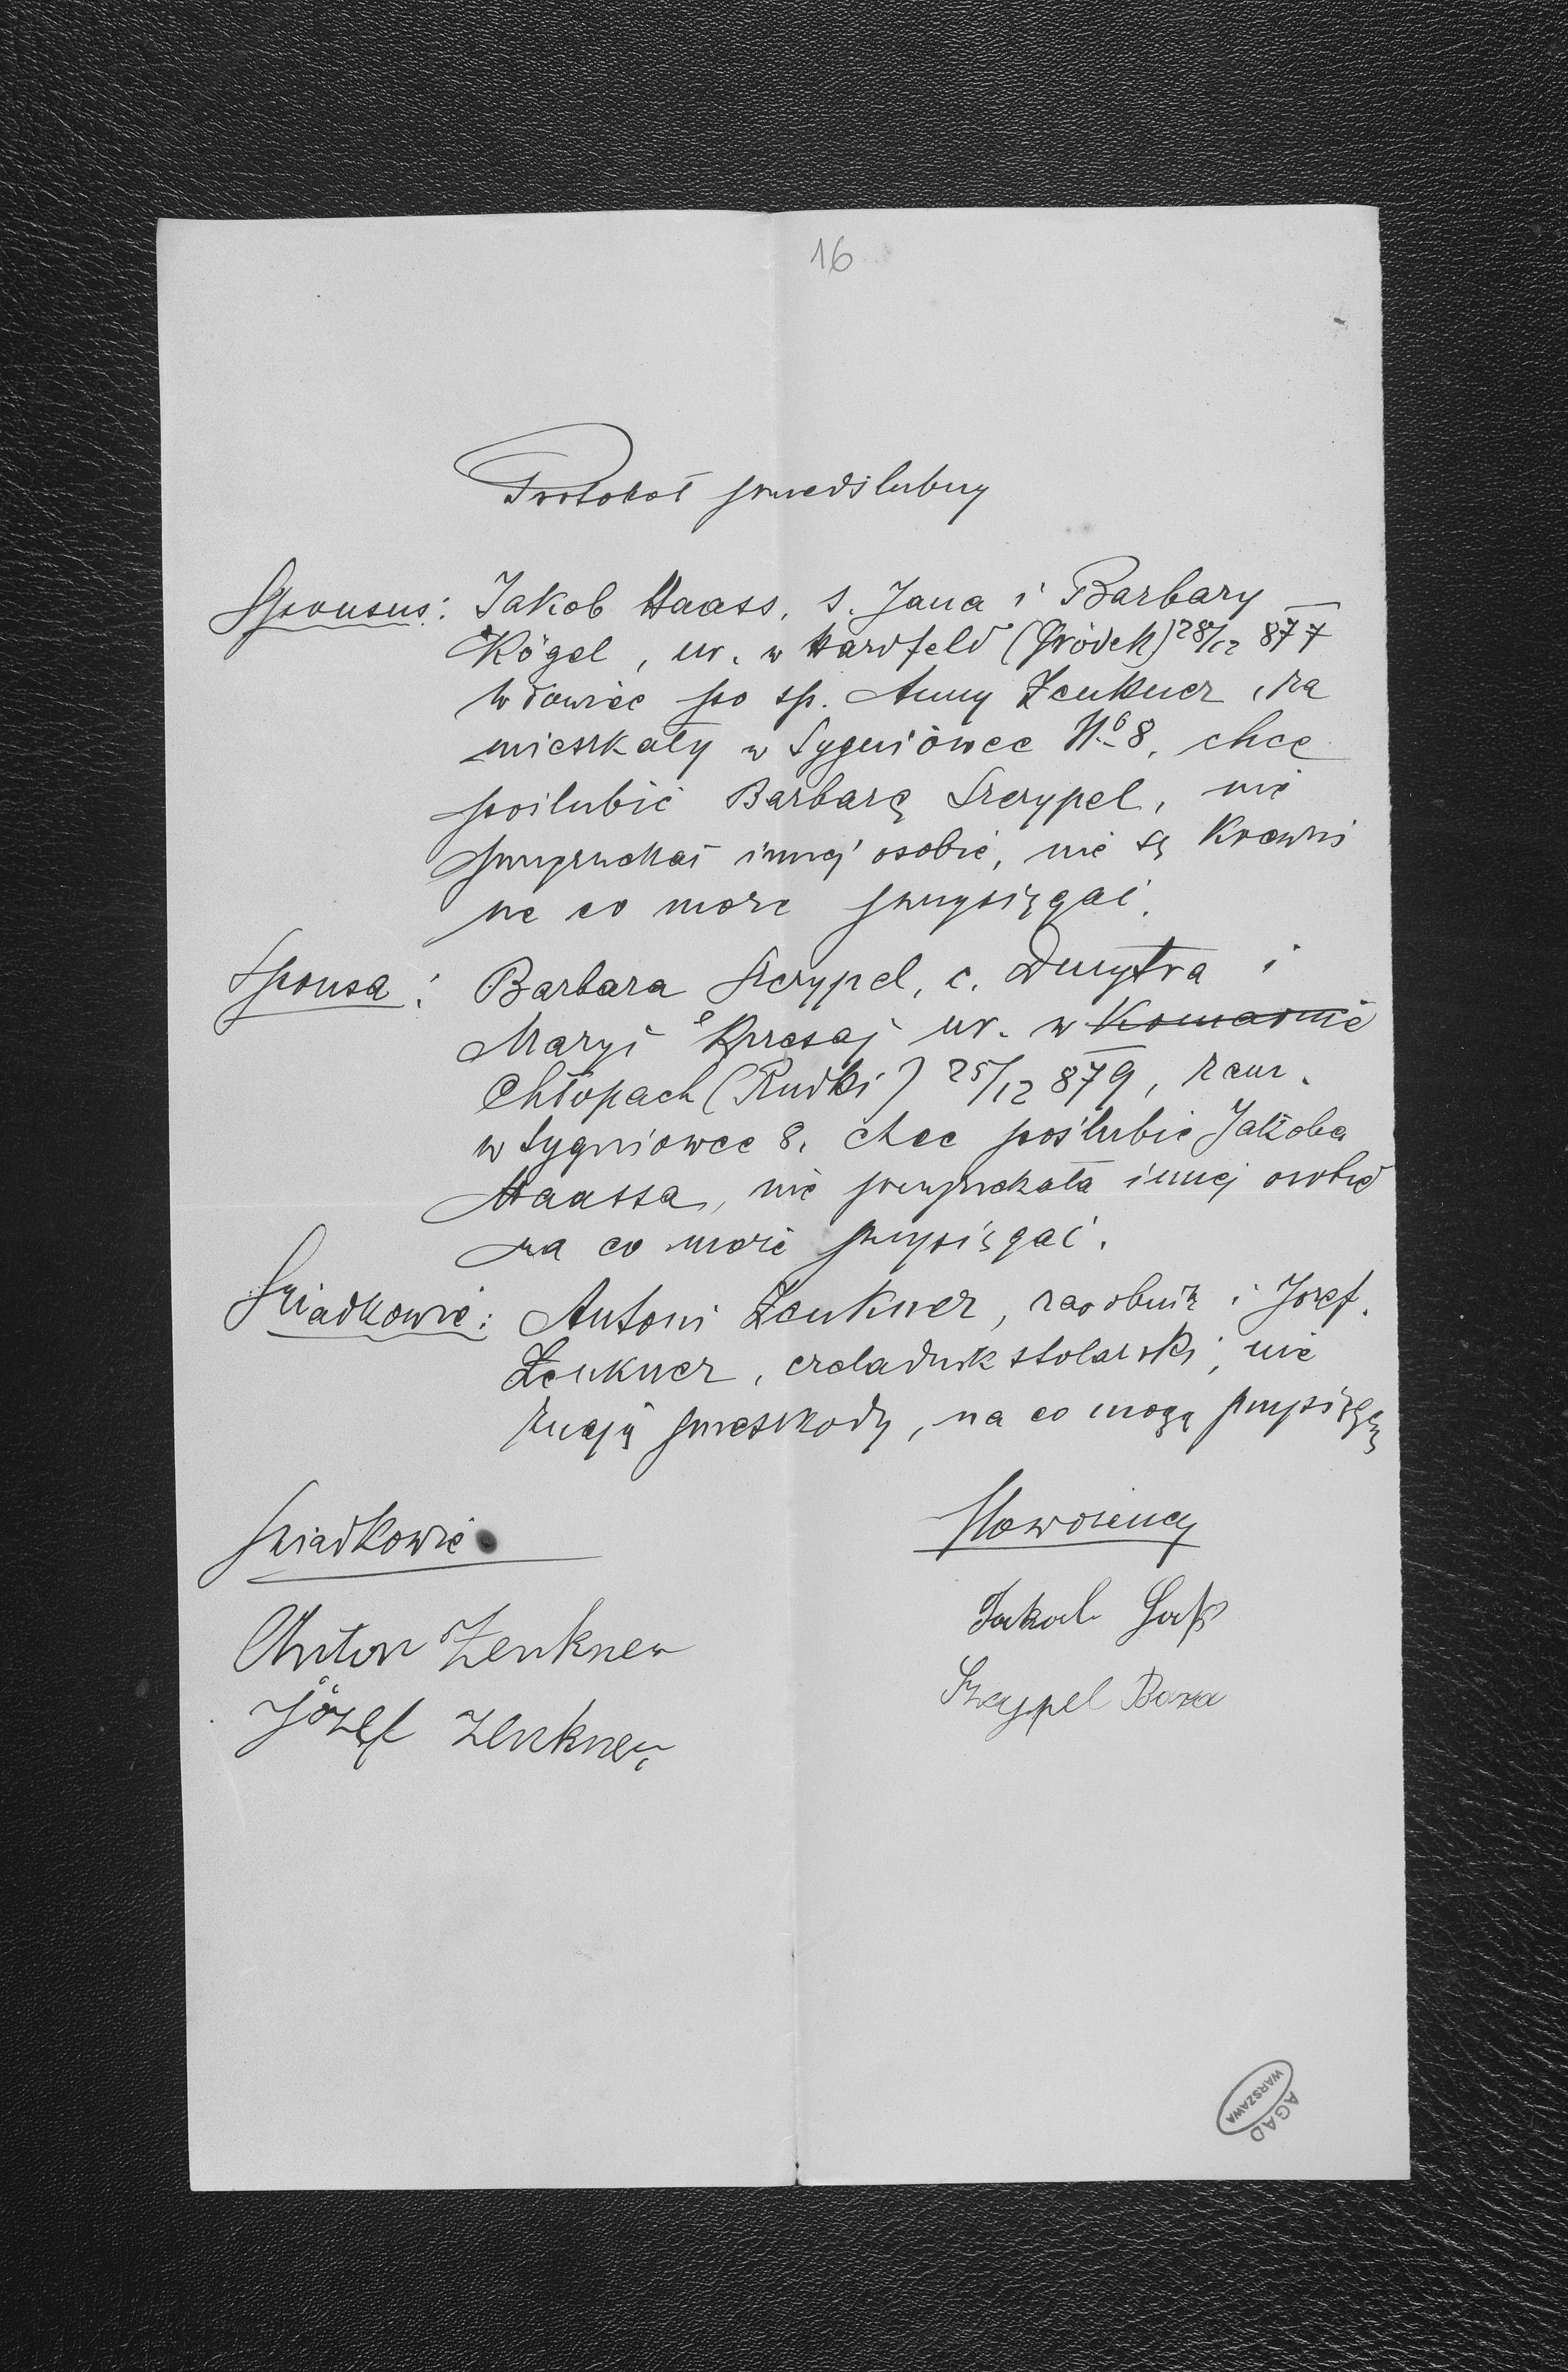 16
Protokół przedślubny
Sponsus: Jakob Haass, s. Jana i Barbary
Kögel, ur. w Hartfeld (Gródek) 28/12 877
wdowiec po śp. Anny Zenkner, za
mieszkały w Sygniówce No 8, chce
poślubić Barbarę Szczypel, nie
przyrzekał innej osobie, nie są krewni
na co może przysięgać.
Sponsa: Barbara Szczypel, c. Dmytra i
Maryi ur. w Komarnie
Chłopach (Rudki) 25/12 879, zam.
w Sygniówce 8. chce poślubić Jakoba
Haassa, nie przyrzekała innej osobie
na co może przysięgać.
Świadkowie: Antoni Zenkner, zarobnik i Józef
Zenkner, czeladnik stolarski, nie
znają przeszkody, na co mogą
Świadkowie
Nowożeńcy
Anton Zenkner
Jakob Haß
Józef Zenkner
Szczypel
AGAD
WARSZAWA